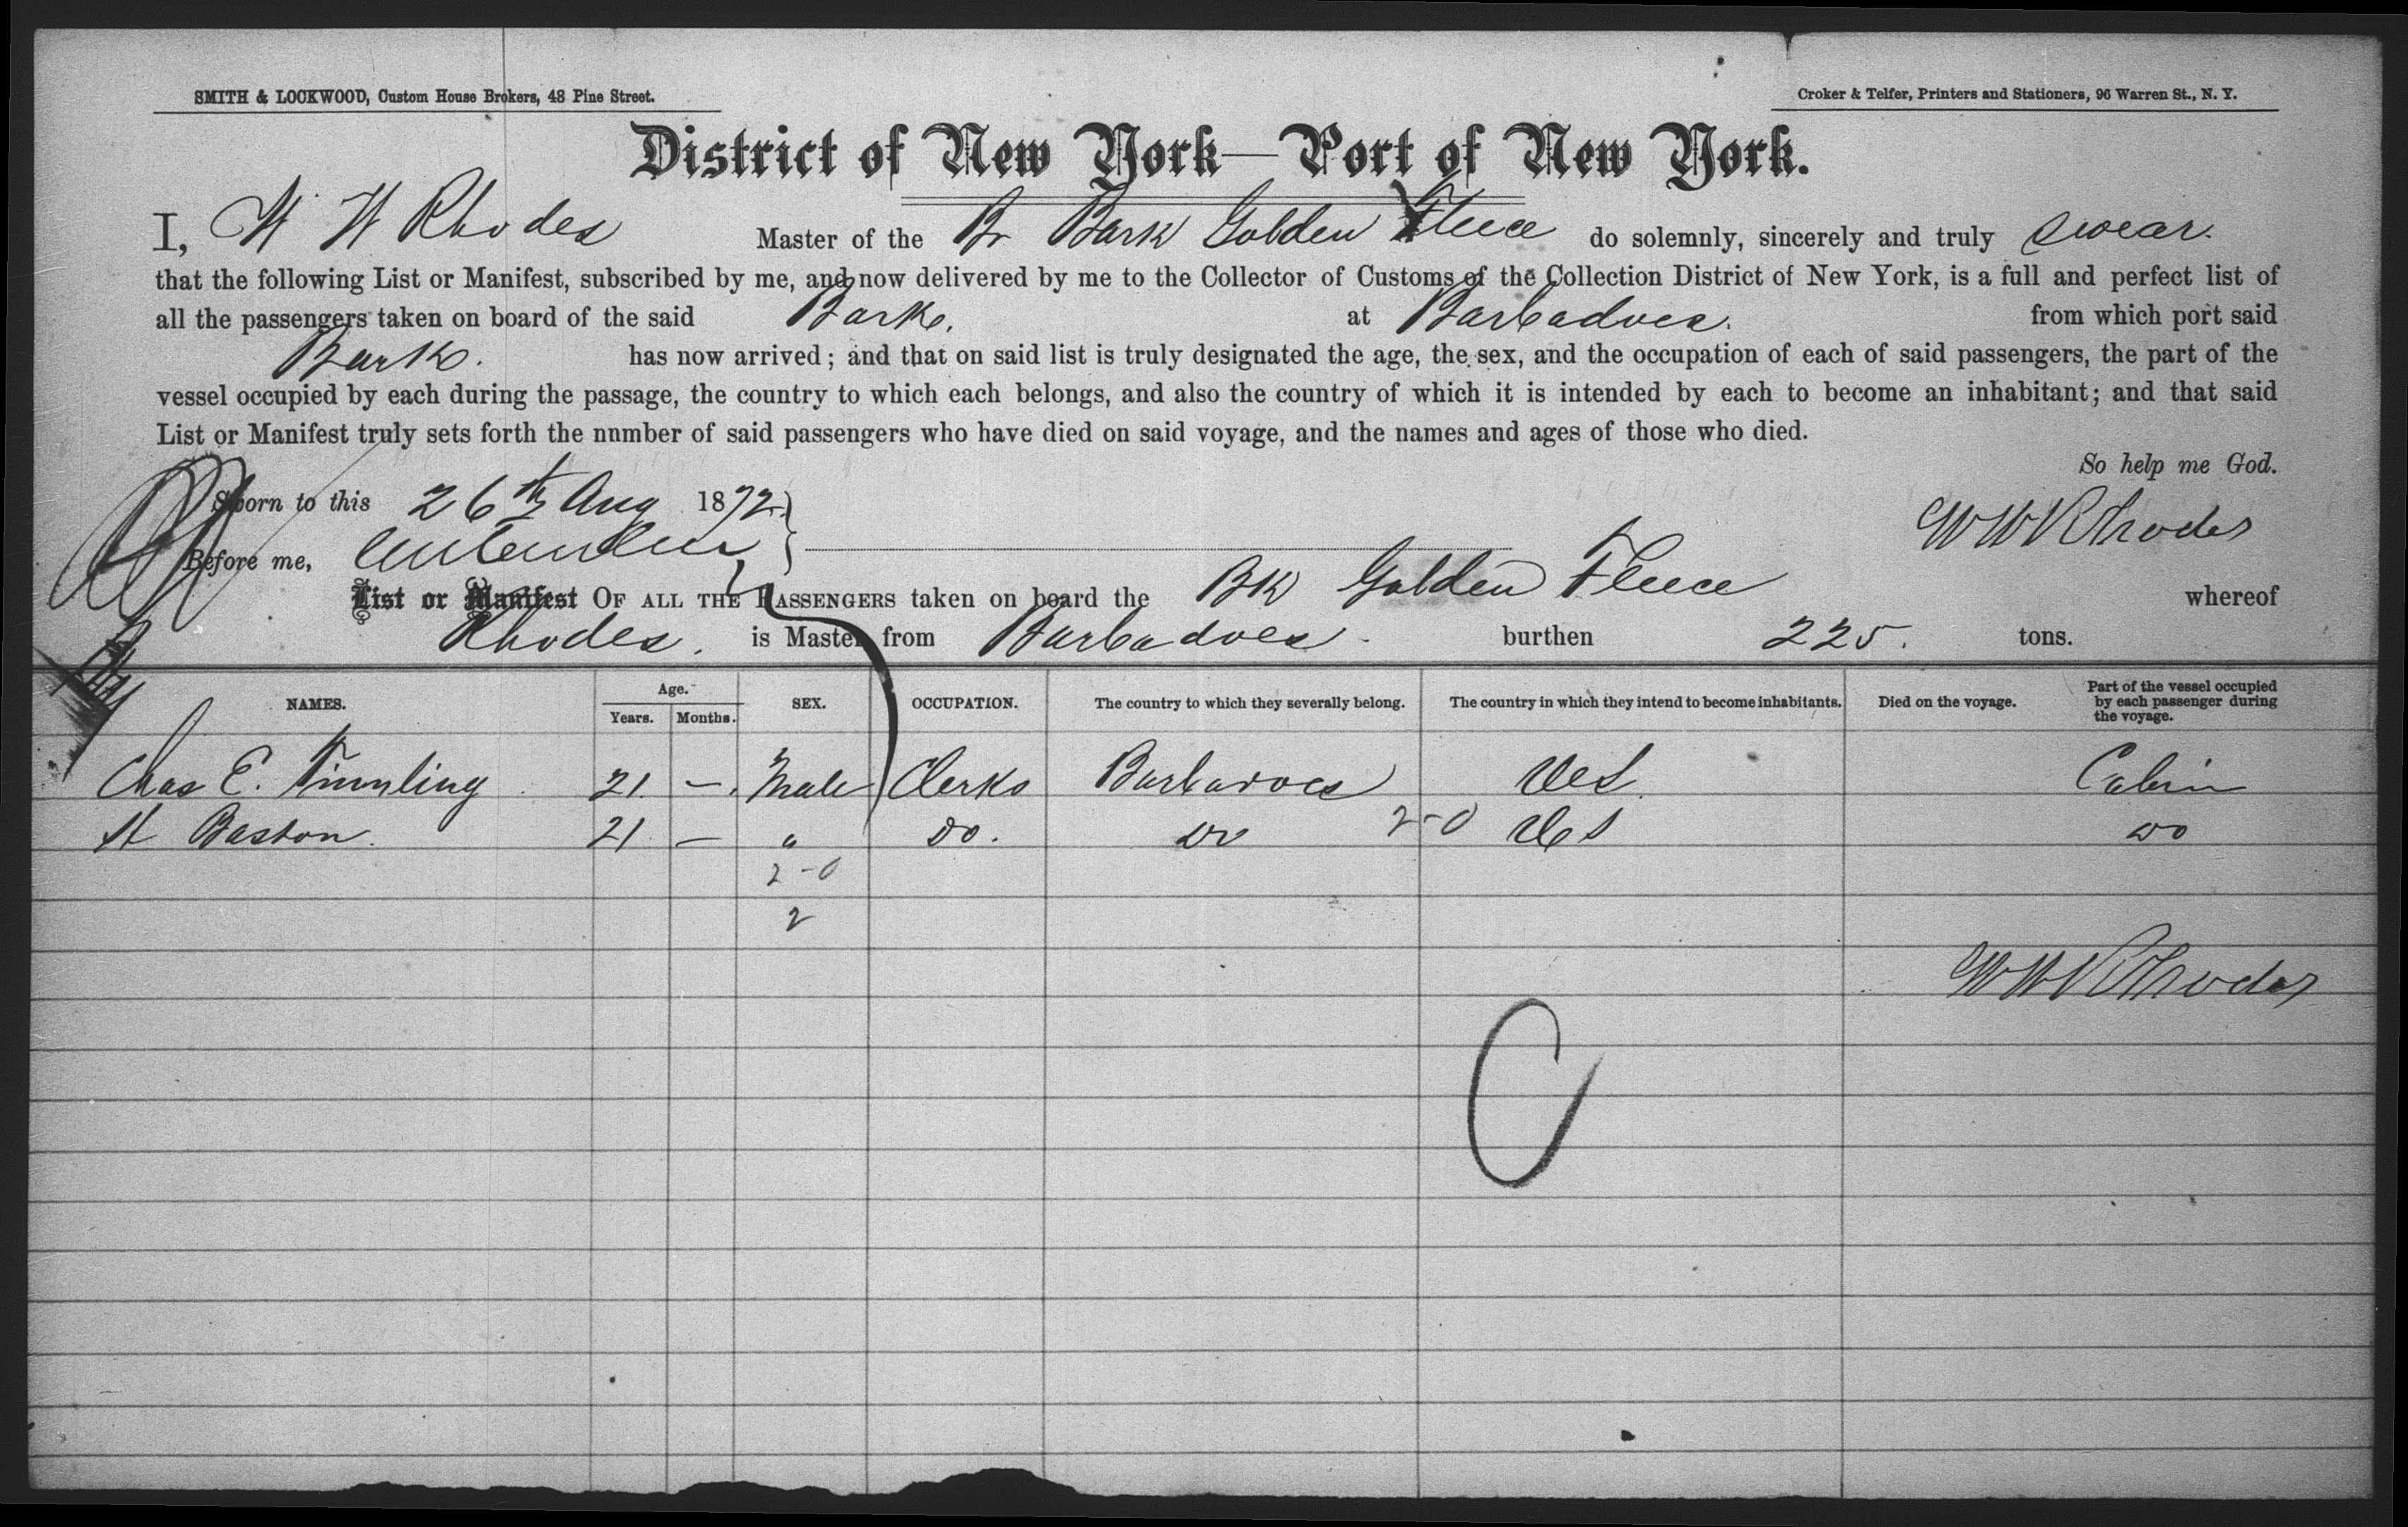 SMITH & LOCKWOOD, Custom House Brokers, 48 Pine Street.
Croker & Telfer, Printers and Stationers, 96 Warren St., N. Y.
District of New York—Port of New York.
I, W W Rhodes Master of the Br Bark Golden Fleece do solemnly, sincerely and truly swear.
that the following List or Manifest, subscribed by me, and now delivered by me to the Collector of Customs of the Collection District of New York, is a full and perfect list of
all the passengers taken on board of the said Bark. at Barbadoes. from which port said
Bark. has now arrived; and that on said list is truly designated the age, the sex, and the occupation of each of said passengers, the part of the
vessel occupied by each during the passage, the country to which each belongs, and also the country of which it is intended by each to become an inhabitant; and that said
List or Manifest truly sets forth the nnmber of said passengers who have died on said voyage, and the names and ages of those who died.
So help me God.
Sworn to this 26th Aug 1872
W W Rhodes
Before me,
List or Manifest OF ALL THE PASSENGERS taken on board the Bk Golden Fleece whereof
Rhodes. is Master from Barbadoes. burthen 225. tons.
NAMES. Age. Years. Months. SEX. OCCUPATION. The country to which they severally belong. The country in which they intend to become inhabitants. Died on the voyage. Part of the vessel occupied by each passenger during the voyage.
Chas E. 21. —. Male Clerks Barbadoes U S Cabin
H Baston. 21 — " Do. Do 2-0 U S Do
2-0
2
W W Rhodes
C